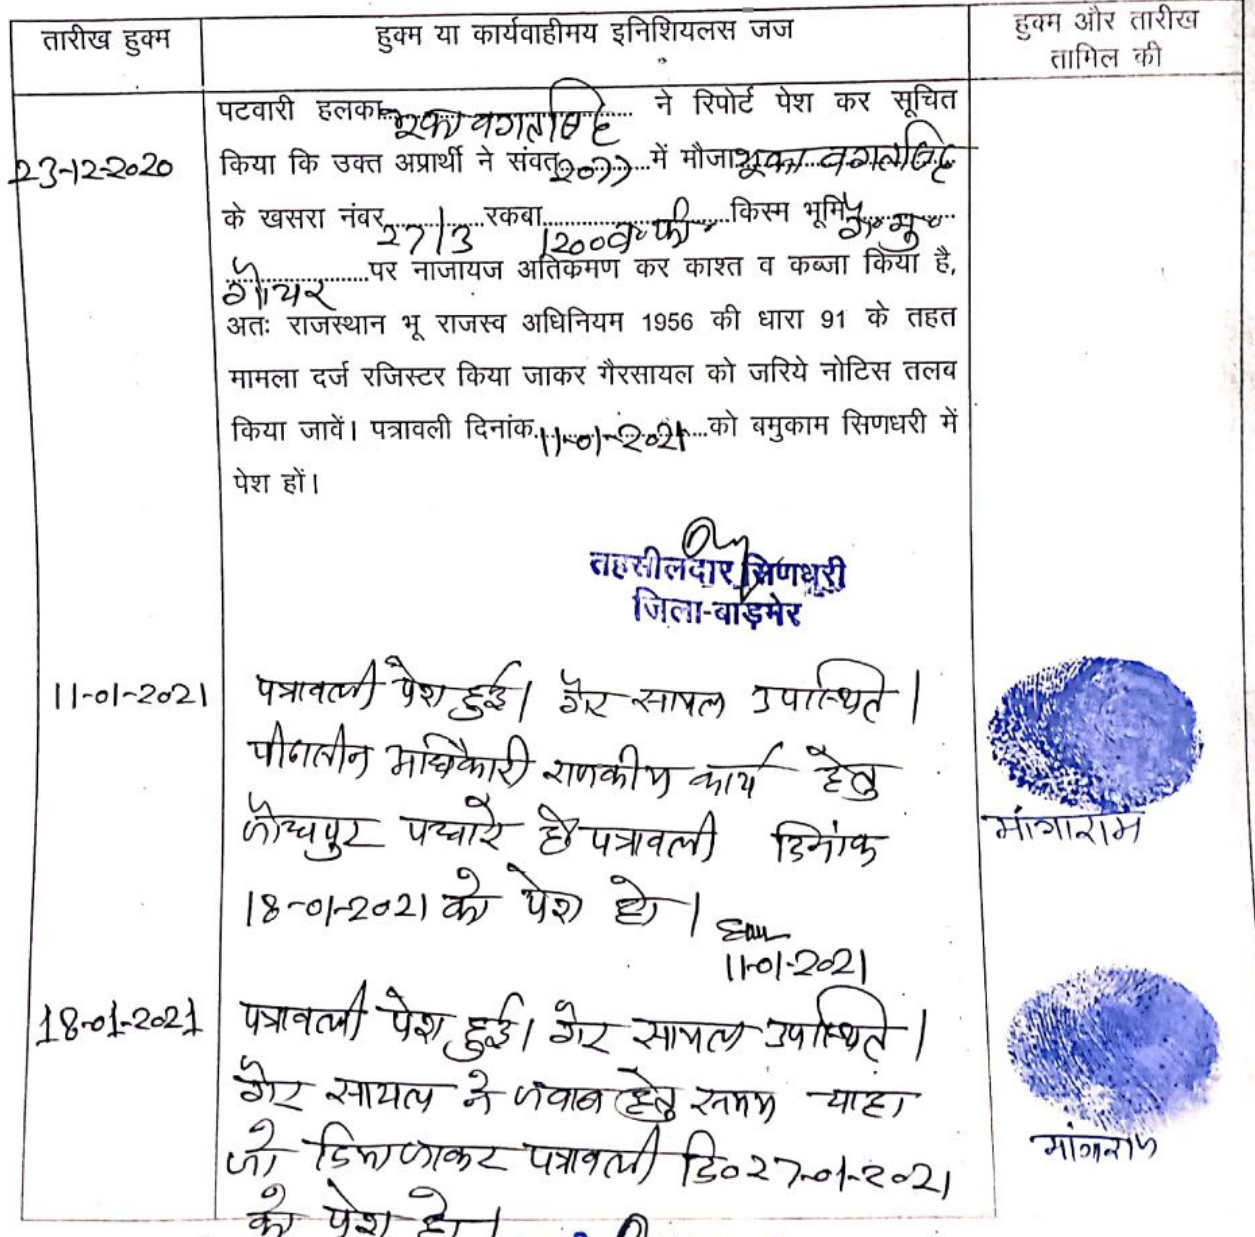 तारीख हुक्म
हुक्म या कार्यवाहीमय इनिशियलस जज
हुक्म और तारीख
तामिल की
23-12-2020
पटवारी हलका भूका भगतसिंह ने रिपोर्ट पेश कर सूचित
किया कि उक्त अप्रार्थी ने संवत् 2077 में मौजा भूका भगतसिंह
के खसरा नंबर 27/3 रकबा 1200 व०फी० किस्म भूमि गै०मु०
गौचर पर नाजायज अतिकमण कर काश्त व कब्जा किया है,
अतः राजस्थान भू राजस्व अधिनियम 1956 की धारा 91 के तहत
मामला दर्ज रजिस्टर किया जाकर गैरसायल को जरिये नोटिस तलब
किया जावें। पत्रावली दिनांक 11-01-2021 को बमुकाम सिणधरी में
पेश हों।
तहसीलदार सिणधरी
जिला-बाड़मेर
11-01-2021
पत्रावली पेश हुई। गैर सायल उपस्थित।
पीठासीन अधिकारी राजकीय कार्य हेतु
जोधपुर पधारे है पत्रावली दिनांक
18-01-2021 को पेश हो।
11-01-2021
मांगाराम
18-01-2021
पत्रावली पेश हुई। गैर सायल उपस्थित।
गैर सायल ने जवाब हेतु समय चाहा
जो दिया जाकर पत्रावली दि० 27-01-2021
को पेश हो।
मांगाराम